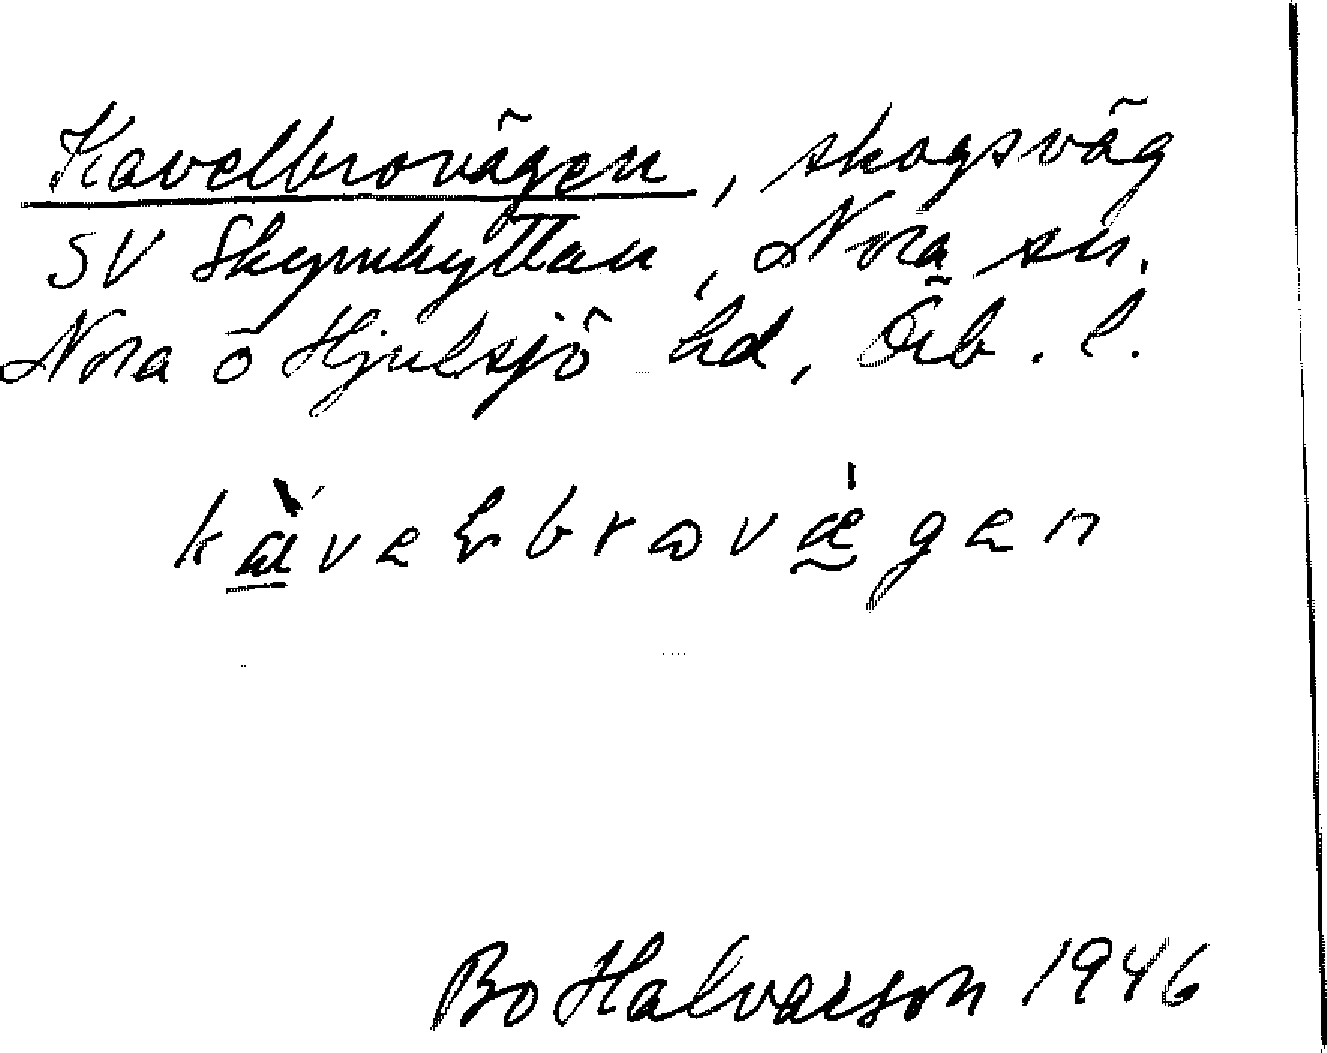 Kavelbrovägen, skogsväg
SV Skymhyttan, Nora sn.
Nora o Hjulsjö hd, Örb. l.
kavelbrovægen
Bo Halvarson 1946